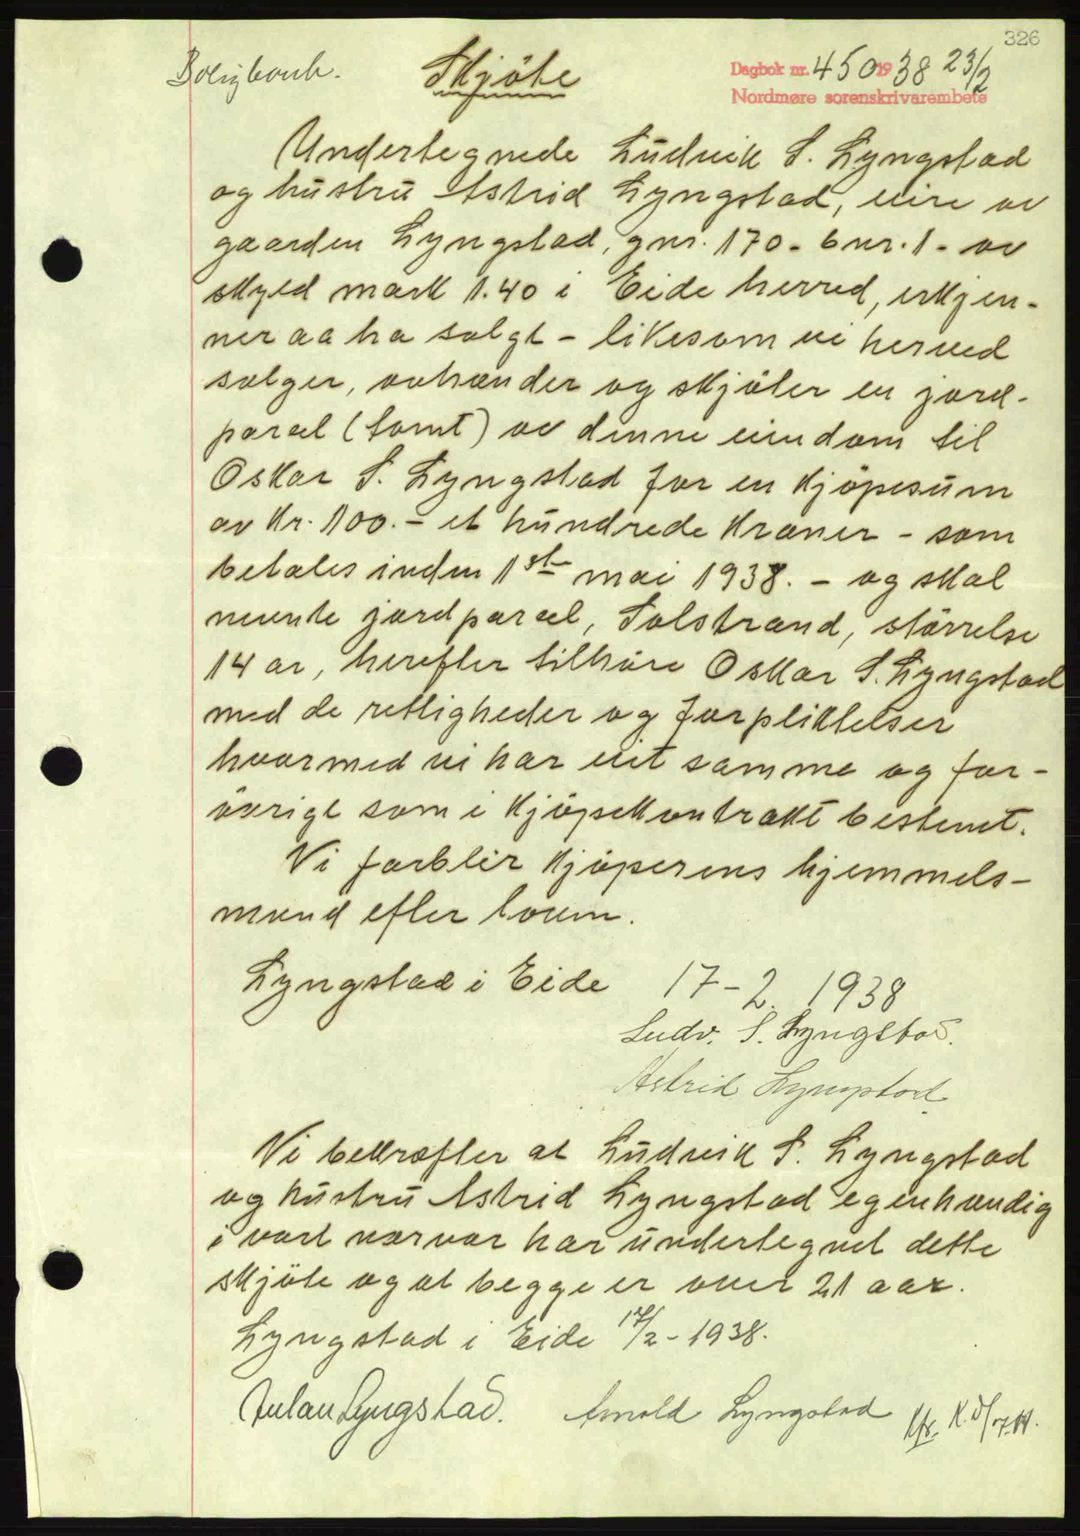 326
Skjöte
Dagbok nr. 450 1938 23/2
Nordmøre sorenskrivarembete
Undertegnede Ludvik S. Lyngstad
og hustru Astrid Lyngstad, eiere av
gaarden Lyngstad, gnr. 170 - bnr. 1 - av
skyld mark 1.40 i Eide herred, erkjen-
ner aa ha solgt - likesom vi herved
sælger, avhænder og skjöter en jord-
parcel (tomt) av denne eiendom til
Oskar S. Lyngstad for en kjöpesum
av Kr. 100.- et hundrede kroner - som
betales inden 1ste mai 1938. - og skal
nevnte jordparcel, Solstrand, störrelse
14 ar, herefter tilhöre Oskar S. Lyngstad
med de rettigheder og forpliktelser
hvormed vi har eiet samme og for-
övrigt som i kjöpekontrakt bestemt.
Vi forblir kjöperens hjemmels-
mænd efter loven.
Lyngstad i Eide 17-2. 1938
Ludv. S. Lyngstad.
Astrid Lyngstad
Vi bekræfter at Ludvik S. Lyngstad
og hustru Astrid Lyngstad egenhændig
i vort nærvær har undertegnet dette
skjöte og at begge er over 21 aar.
Lyngstad i Eide 17/2 - 1938.
Lyngstad. Arnold Lyngstad